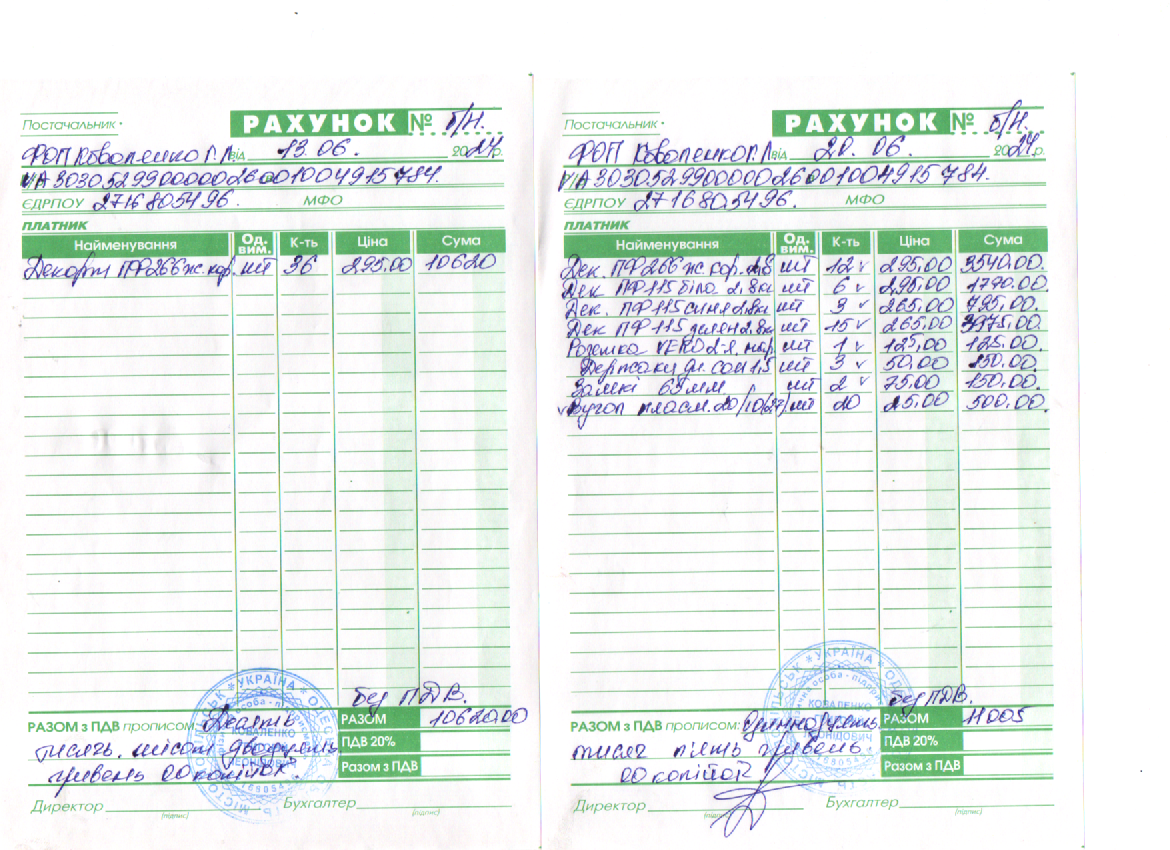 Постачальник •
РАХУНОК № б/н.
ФОП Коваленко Г.Л. від 13.06. 2024 р.
UA303052990000026001004915784.
ЄДРПОУ 2716805496. МФО
ПЛАТНИК
Найменування Од. вим. К-ть Ціна Сума
ПФ 266 ж.кор. шт 36 295.00 10620
без ПДВ.
РАЗОМ з ПДВ прописом: Десять РАЗОМ 10620.00
тисяч. шістот двадцять ПДВ 20%
гривень 00 копійок Разом з ПДВ
Директор Бухгалтер
(підпис) (підпис)
УКРАЇНА
КОВАЛЕНКО
Постачальник •
РАХУНОК № б/н.
ФОП Коваленко Г.Л. від 20. 06. 2024 р.
UA303052990000026001004915784.
ЄДРПОУ 2716805496. МФО
ПЛАТНИК
Найменування Од. вим. К-ть Ціна Сума
Дек. ПФ 266 ж.кор. 2.8 шт 12 v 295.00 3540.00.
Дек ПФ 115 біла. 2.8кг шт 6 v 295.00 1770.00.
Дек. ПФ 115 синя 2.8кг шт 3 v 265.00 795.00.
Дек ПФ 115 зелен 2.8кг шт 15 v 265.00 3975.00.
Розетка VERO 2-я. нар. шт 1 v 125.00 125.00.
шт 3 v 50.00 150.00.
Замкі 63 мм шт 2 v 75.00 150.00.
v Вугол пласм. 20/10(27) шт 20 25.00 500.00.
без ПДВ.
РАЗОМ з ПДВ прописом: Одинадцять РАЗОМ 11005
тисяч п'ять гривень ПДВ 20%
00 копійок Разом з ПДВ
Директор Бухгалтер
(підпис) (підпис)
УКРАЇНА
КОВАЛЕНКО